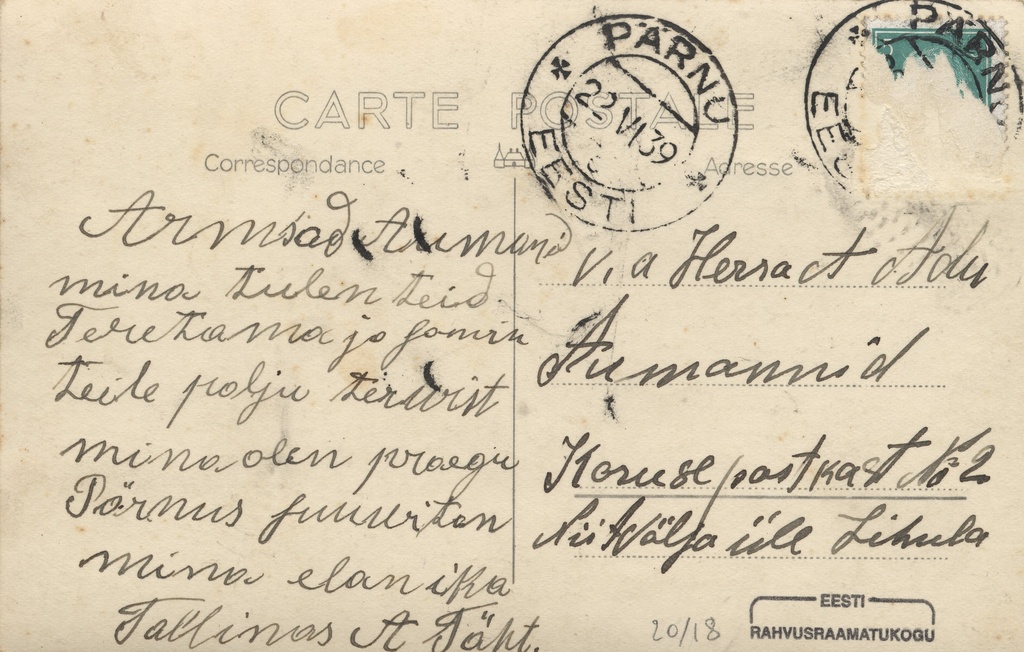 CARTE POSTALE
Correspondance
Adresse
PÄRNU
22 VI 39
EESTI
PÄRNU
Armsad Aumanid
mina tulen teid
Teretama jo
teile polju terwist
mina olen praegu
Pörnus suuwitan
mina elan ika
Tallinas A Täht.
V. a Herra A Adu
Aumannid
Koruse postkast No 2
Niitvälja üll Lihula
20/18
EESTI
RAHVUSRAAMATUKOGU